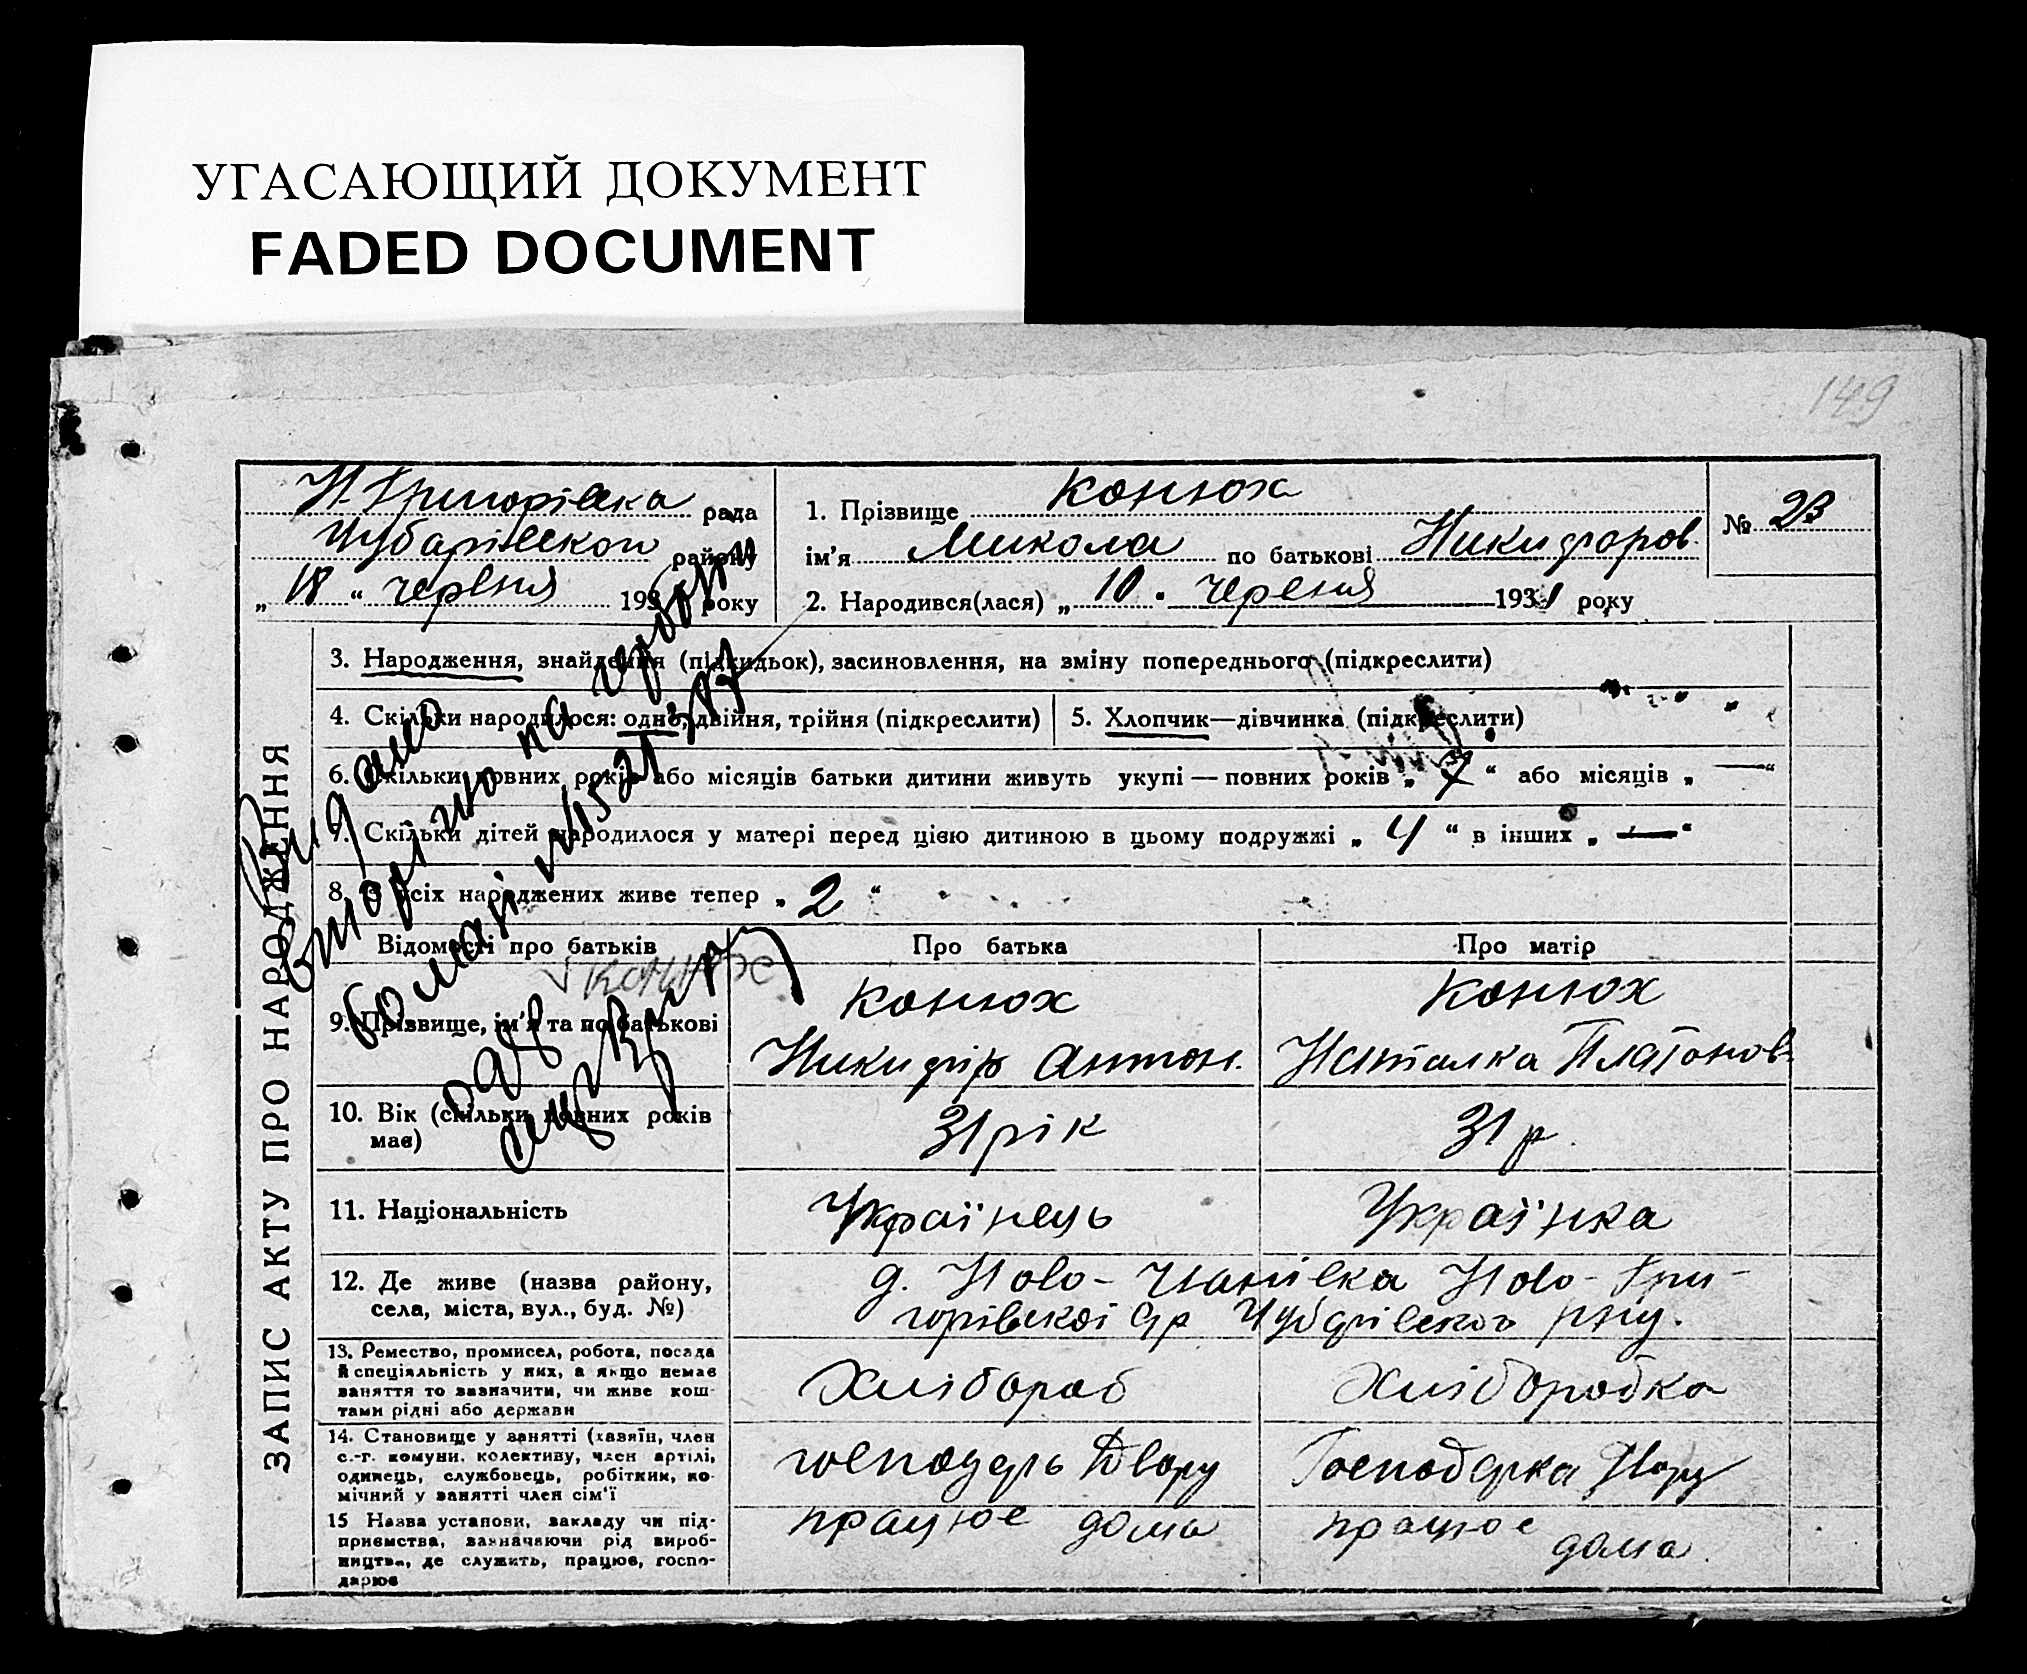 УГАСАЮЩИЙ ДОКУМЕНТ
FADED DOCUMENT
149
Н-Григорівска рада
Чубарівскоп району
„ 18 “ червня 193 року
1. Прізвище Конюх
ім'я Микола по батькові Никифоров.
2. Народився(лася) „ 10 " червня 1931 року
№ 23
ЗАПИС АКТУ ПРО НАРОДЖЕННЯ
3. Народження, знайдення (підкидьок), засиновлення, на зміну попереднього (підкреслити)
4. Скільки народилося: одно, двійня, трійня (підкреслити)
5. Хлопчик—дівчинка (підкреслити)
6. Скільки повних років або місяців батьки дитини живуть укупі — повних років „ 7 “ або місяців „ — “
7. Скільки дітей народилося у матері перед цією дитиною в цьому подружжі „ 4 “ в інших „ — “
8. З усіх народжених живе тепер „ 2 “
Видано
вторічно на
Відомості про батьків
Про батька
Про матір
Конюх
9. Прізвище, ім'я та по батькові
Конюх
Никифір Антон.
Конюх
Наталка Платонов
10. Вік (скільки повних років
має)
31 рік
31 р.
11. Національність
Українець
Українка
12. Де живе (назва району,
села, міста, вул., буд. №)
д. Ново- Ново-Гри-
горівскої с/р Чубарівского р-ну.
13. Ремество, промисел, робота, посада
й спеціяльність у них, а якщо немає
заняття то зазначити, чи живе кош-
тами рідні або держави
Хлібороб
Хліборобка
14. Становище у занятті (хазяїн, член
с.-г. комуни, колективу, член артілі,
одинець, службовець, робітник, по-
мічний у занятті член сім'ї
господарь Двору
Господарка Двору
15 Назва установи, закладу чи під-
приємства, зазначаючи рід вироб-
ництва, де служить, працює, госпо-
дарює
працює дома
працює
дома